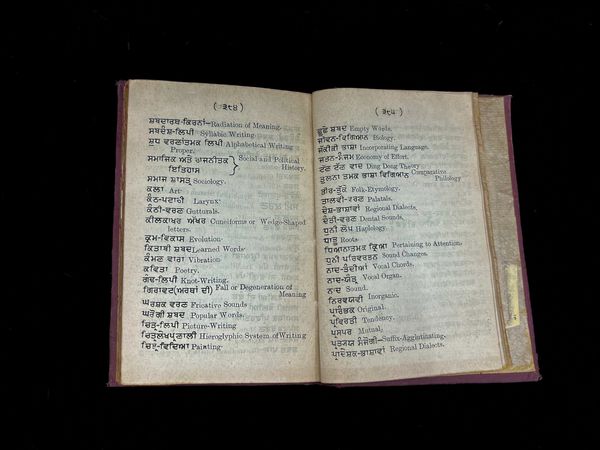 ( ੩੮੪ )
ਸ਼ਬਦਾਰਥ-ਕਿਰਨਾਂ—Radiation of Meaning.
ਸਬਦੰਸ਼-ਲਿਪੀ Syllabic Writing.
ਸ਼ੁਧ ਵਰਣਾਤਮਕ ਲਿਪੀ Alphabetical Writing
Proper.
ਸਮਾਜਿਕ ਅਤੇ ਰਾਜਨੀਤਕ Social and Political
ਇਤਿਹਾਸ History.
ਸਮਾਜ ਸ਼ਾਸਤ੍ਰ Sociology.
ਕਲਾ Art.
ਕੰਠ-ਪਟਾਰੀ Larynx.
ਕੰਠੀ-ਵਰਣ Gutturals.
ਕੀਲਕਾਖਰ ਅੱਖਰ Cuneiforms or Wedge-Shaped
letters.
ਕ੍ਰਮ-ਵਿਕਾਸ Evolution.
ਕਿਤਾਬੀ ਸ਼ਬਦ Learned Words.
ਕੰਮਣ ਵਾਰਾ Vibration.
ਕਵਿਤਾ Poetry.
ਗੰਢ-ਲਿਪੀ Knot-Writing.
ਗਿਰਾਵਟ(ਅਰਥਾਂ ਦੀ) Fall or Degeneration of
Meaning
ਘਰਸ਼ਕ ਵਰਣ Fricative Sounds
ਘਰੋਗੀ ਸ਼ਬਦ Popular Words.
ਚਿਤ੍ਰ-ਲਿਪੀ Picture-Writing
ਚਿਤ੍ਰਲੇਖਪ੍ਰਣਾਲੀ Hieroglyphic System of Writing
ਚਿਤ੍ਰ-ਵਿਦਿਆ Painting.
( ੩੮੫ )
ਛੂਛੇ ਸ਼ਬਦ Empty Words.
ਜੀਵਨ-ਵਿਗਿਆਨ Biology.
ਜੱਕੀਕੀ ਭਾਸ਼ਾ Incorporating Language.
ਜਤਨ-ਸੰਜਮ Economy of Effort.
ਟੱਣ ਟੱਣ ਵਾਦ Ding Dong Theory
ਤੁਲਨਾ ਤਮਕ ਭਾਸ਼ਾ ਵਿਗਿਆਨ Comparative
Philology
ਤੀਰ-ਤੁੱਕੇ Folk-Etymology.
ਤਾਲਵੀ-ਵਰਣ Palatals.
ਦੇਸ਼-ਭਾਸ਼ਾਵਾਂ Regional Dialects.
ਦੰਤੀ-ਵਰਣ Dental Sounds.
ਧੁਨੀ ਲੋਪ Haplology.
ਧਾਤੂ Roots.
ਧਿਆਨਾਤਮਕ ਕ੍ਰਿਆ Pertaining to Attention.
ਧੁਨੀ ਪਰਿਵਰਤਨ Sound Changes.
ਨਾਦ-ਤੰਦੀਆਂ Vocal Chords.
ਨਾਦ-ਯੰਤ੍ਰ Vocal Organ.
ਨਾਦ Sound.
ਨਿਰਵਯਵੀ Inorganic.
ਪ੍ਰਾਰੰਭਕ Original.
ਪ੍ਰਵਿਰਤੀ Tendency.
ਪ੍ਰਸਪਰ Mutual.
ਪ੍ਰਤਯਯ ਸੰਜੋਗੀ—Suffix-Agglutinating.
ਪ੍ਰਾਦੇਸ਼ਕ-ਭਾਸ਼ਾਵਾਂ Regional Dialects.